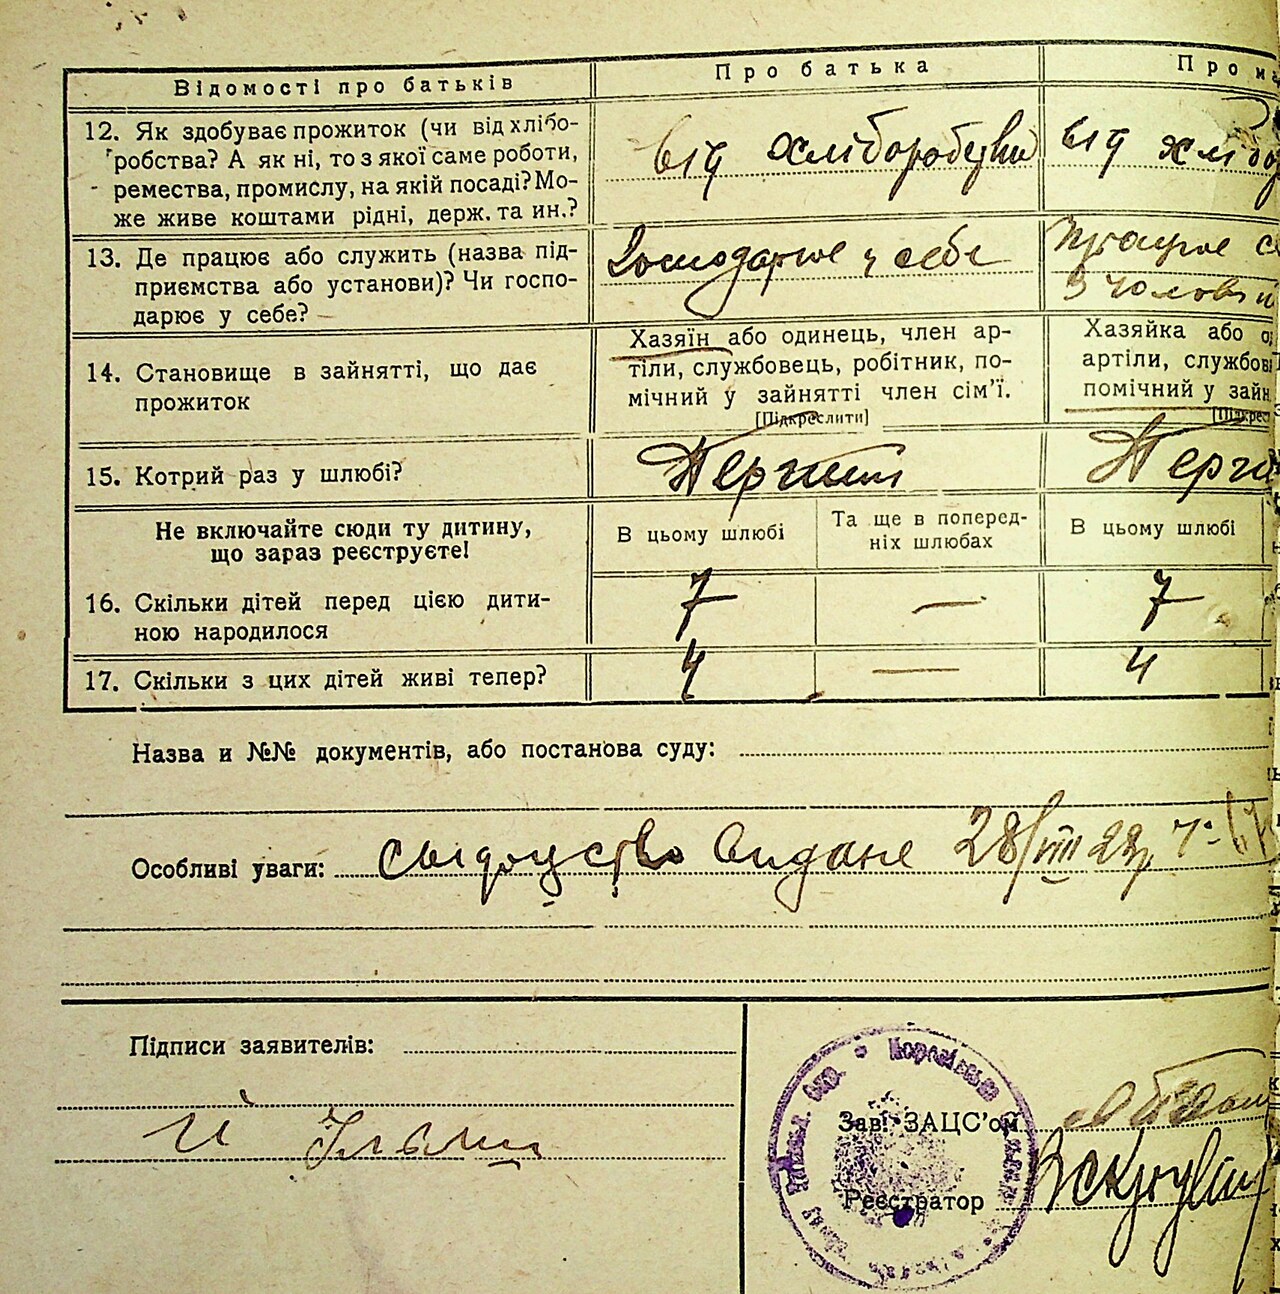 Відомості про батьків
Про батька
Про
12. Як здобуває прожиток (чи від хлібо-
робства? А як ні, то з якої саме роботи,
ремества, промислу, на якій посаді? Мо-
же живе коштами рідні, держ. та ин.?
від хліборобства
від
13. Де працює або служить (назва під-
приємства або установи)? Чи госпо-
дарює у себе?
Господарює у себе
Працює
з чолові
14. Становище в зайнятті, що дає
прожиток
Хазяїн або одинець, член ар-
тіли, службовець, робітник, по-
мічний у зайнятті член сім'ї.
[Підкреслити]
Хазяйка або
артіли, службов
помічний у зайн
[Підкрес
15. Котрий раз у шлюбі?
Перший
Пер
Не включайте сюди ту дитину,
що зараз реєструєте!
В цьому шлюбі
Та ще в поперед-
ніх шлюбах
В цьому шлюбі
16. Скільки дітей перед цією дити-
ною народилося
7
—
7
17. Скільки з цих дітей живі тепер?
4
—
4
Назва и №№ документів, або постанова суду:
Особливі уваги: свідоцтво видане 28/VIII 29р.
Підписи заявителів:
Зав. ЗАЦС'ом
Реєстратор